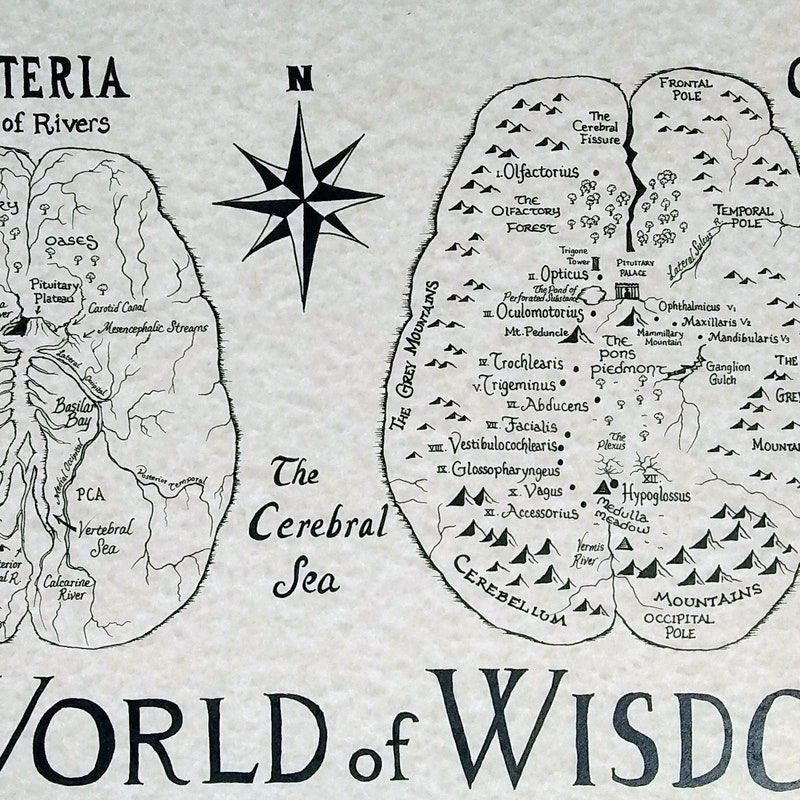 TERIA
of Rivers
OASES
Pituitary
Plateau
Carotid Canal
Mesencephalic Streams
Lateral Occipital
Basilar
Bay
Medial Occipital
Posterior Temporal
PCA
Vertebral
Sea
Calcarine
River
N
The
Cerebral
Sea
FRONTAL
POLE
The
Cerebral
Fissure
I. Olfactorius
THE
OLFACTORY
FOREST
TEMPORAL
POLE
Lateral Sulcus R.
Trigone
Tower
PITUITARY
PALACE
II. Opticus
The Pond of
Perforated Substance
III. Oculomotorius
Ophthalmicus V1
Maxillaris V2
Mandibularis V3
Mt. Peduncle
Mammillary
Mountain
THE GREY MOUNTAINS
The
Pons
Piedmont
IV. Trochlearis
V. Trigeminus
Ganglion
Gulch
VI. Abducens
VII. Facialis
VIII. Vestibulocochlearis
The
Plexus
IX. Glossopharyngeus
X. Vagus
XII
Hypoglossus
XI. Accessorius
Medulla
Meadow
THE
GREY
MOUNTA
Vermis
River
CEREBELLUM
MOUNTAINS
OCCIPITAL
POLE
WORLD of WISDO